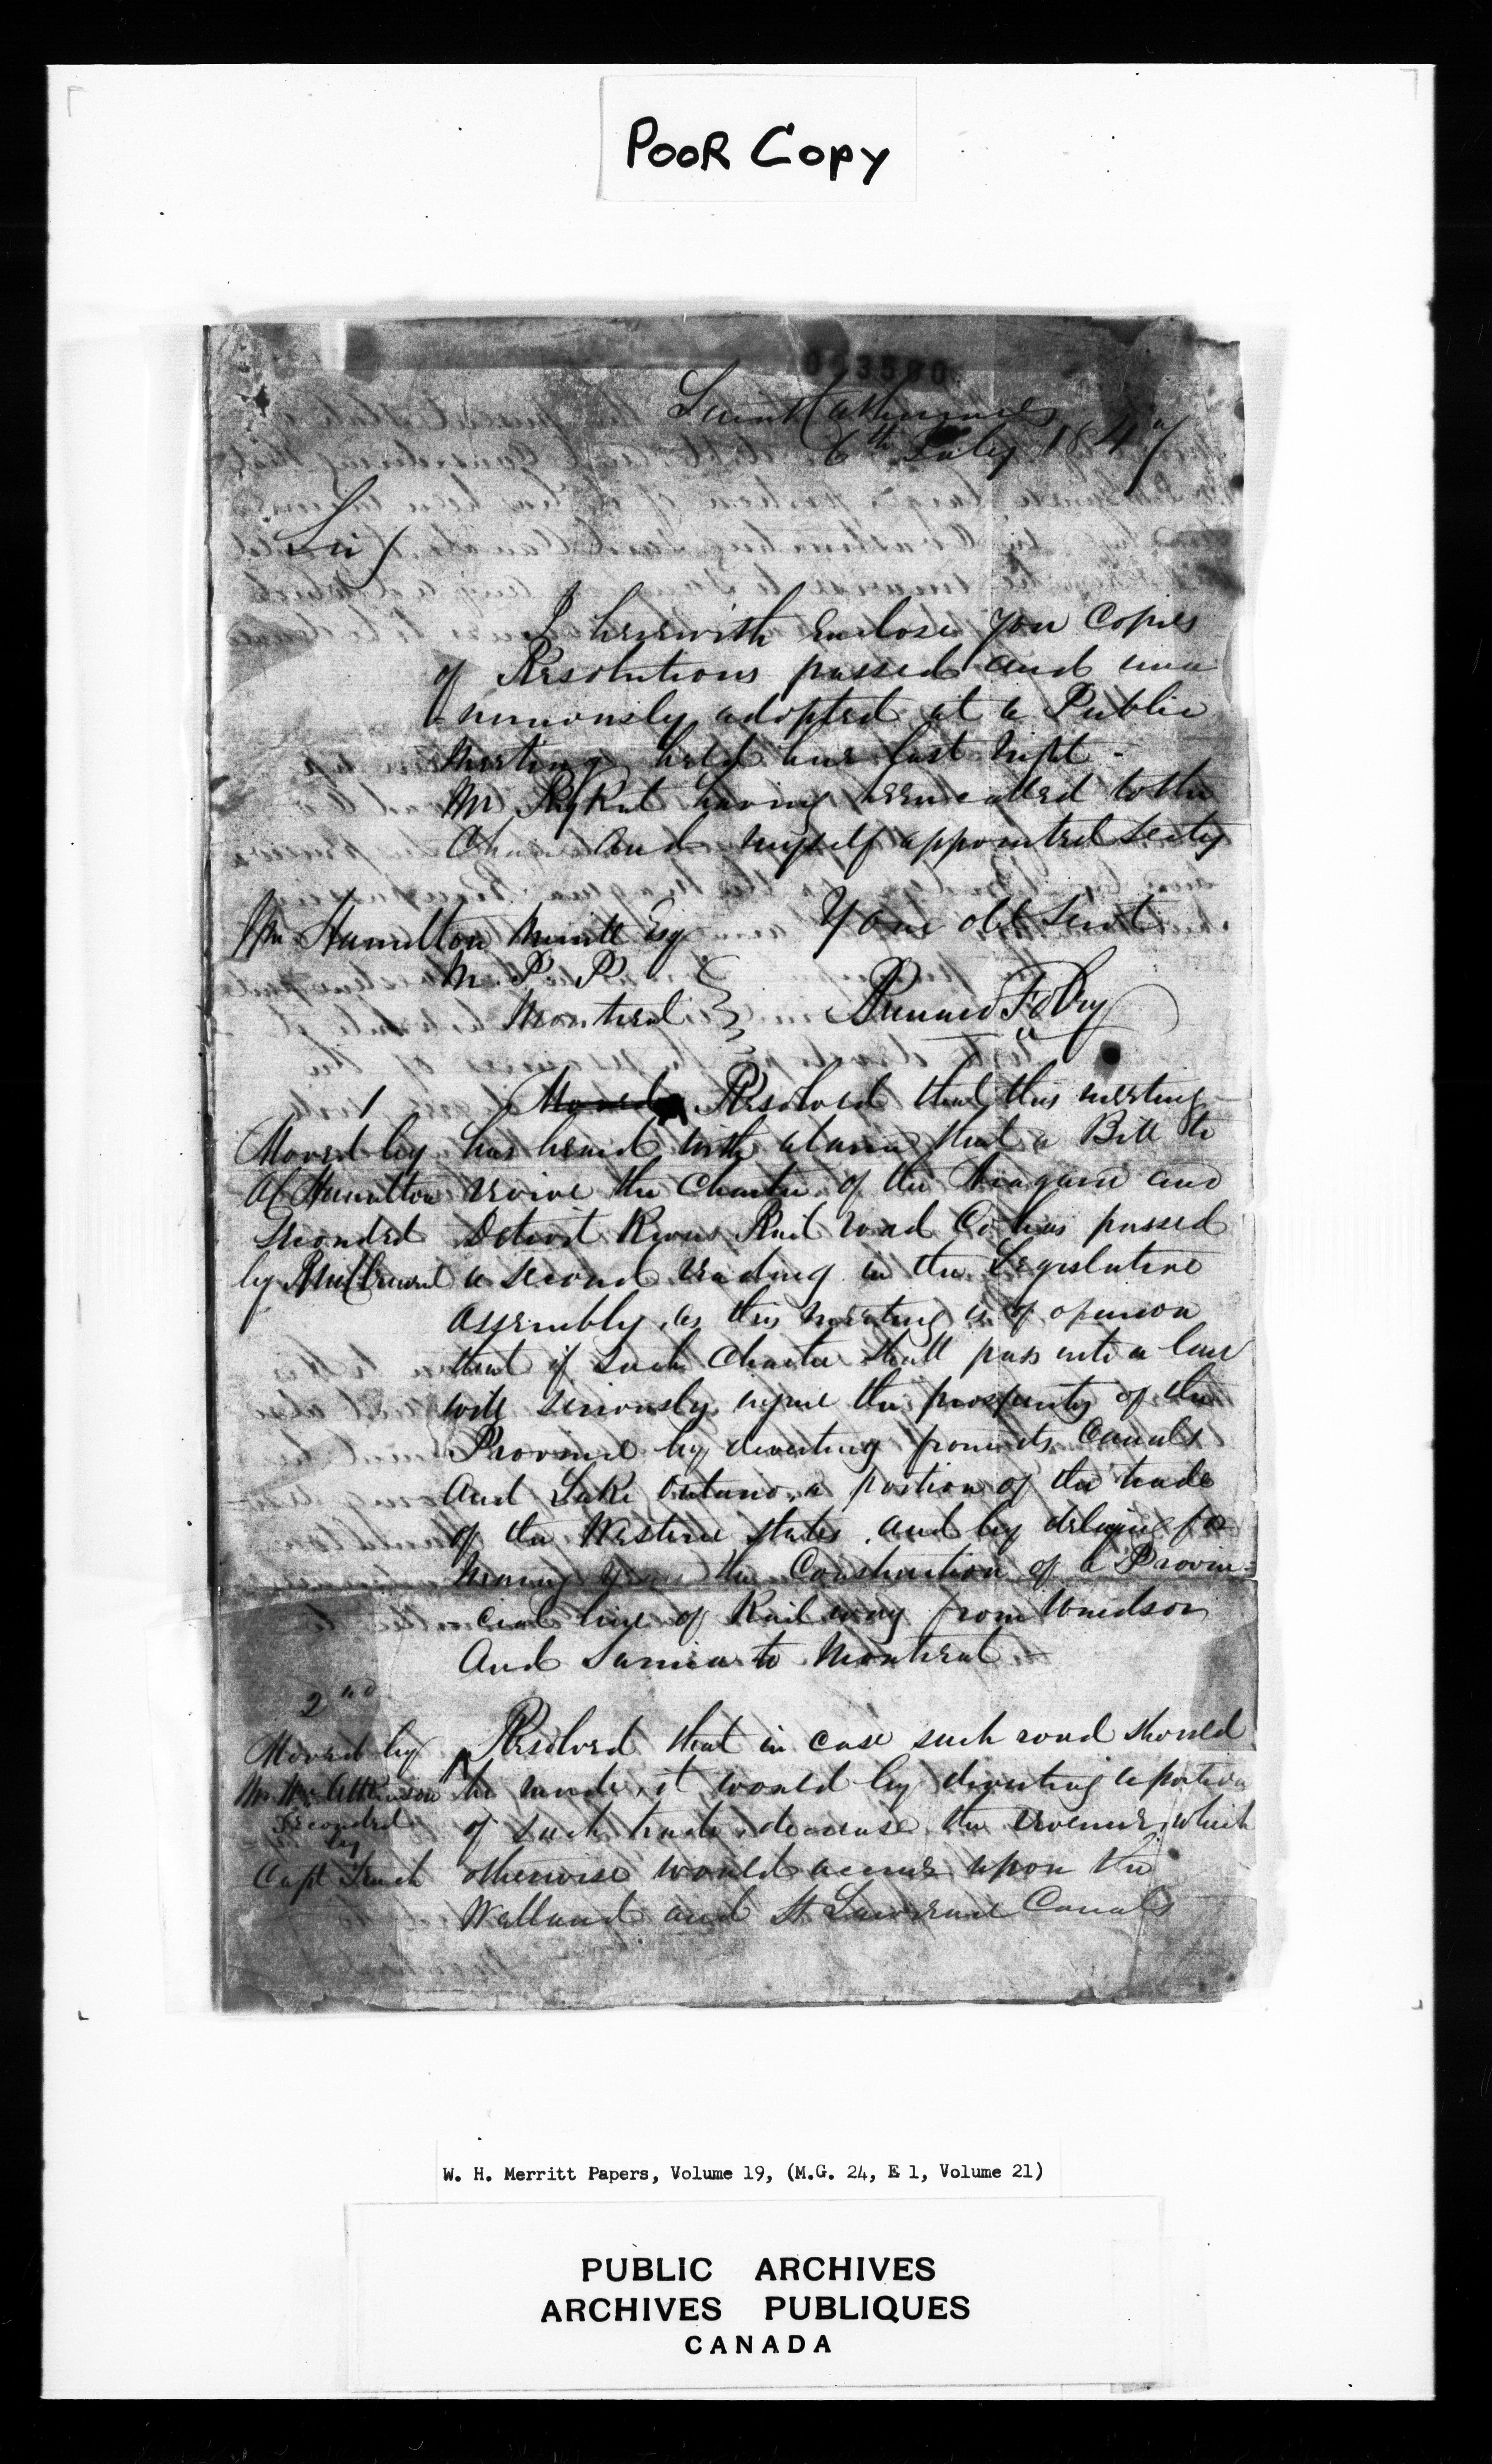 POOR COPY
Saint Catharines
6th July 1847
Sir/
I herewith Enclose you Copies
of Resolutions passed and una
-nimously adopted at a Public
Meeting held here last night -
Mr having been called to the
Chair and myself appointed Secty
Your obt Servt
Wm Hamilton Merritt Esq
M. P. P.
Montreal
Bernard Foley
1
Resolved that this meeting
Moved by has heard with alarm that a Bill to
Hamilton revive the Charter of the Niagara and
Seconded Detroit Rivers Rail road Co has passed
by a second reading in the Legislative
Assembly, as this meeting is of opinion
that if such Charter shall pass into a law
will seriously injure the prosperity of the
Province by diverting from its Canals
And Lake Ontario, a portion of the trade
of the Western States, and by delaying for
many years the Construction of a Provin-
cial line of Rail way from Windsor
And Sarnia to Montreal -
2nd
Moved by Resolved that in case such road should
Mr Wm Atkinson be made, it would by diverting a portion
Seconded of such trade, decrease the revenue, which
by
Capt otherwise would accrue upon the
Welland and St Lawrence Canals
W. H. Merritt Papers, Volume 19, (M.G. 24, E 1, Volume 21)
PUBLIC ARCHIVES
ARCHIVES PUBLIQUES
CANADA